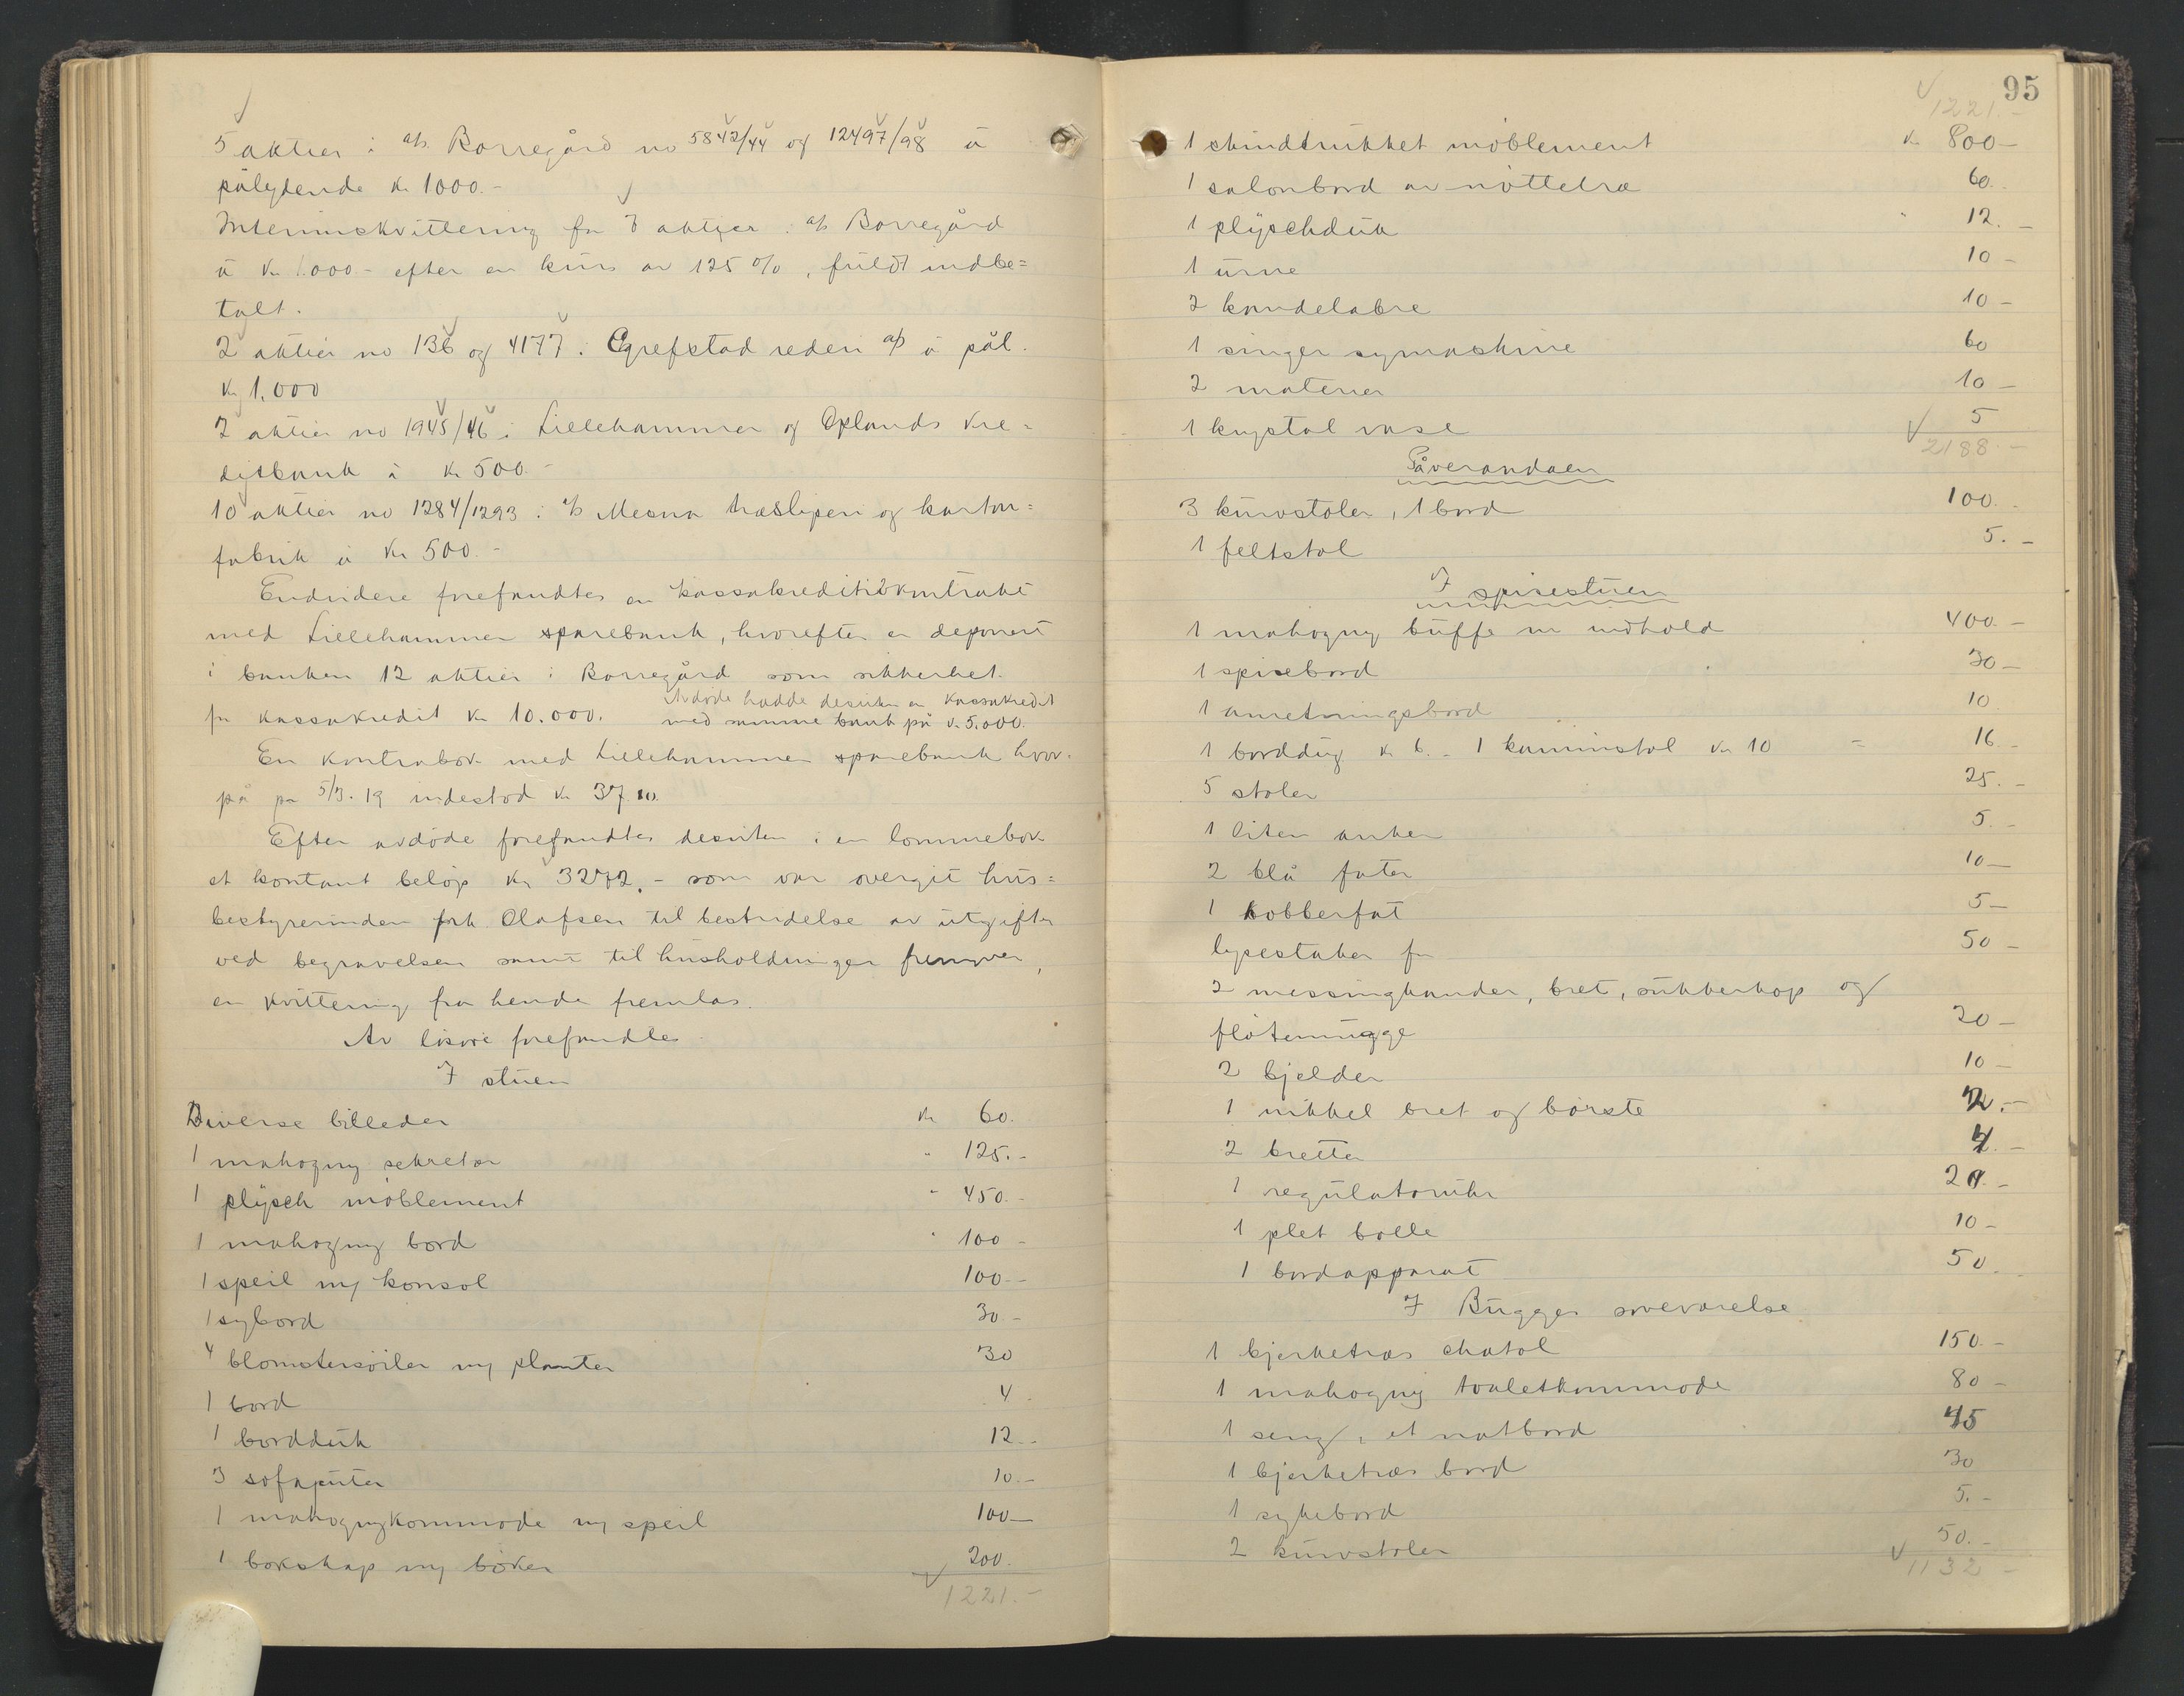 5 aktier i a/s Borregård no 5842/44 og 12497/98 á
pålydende Kr 1000.-
Interimskvittering for 7 aktier i a/s Borregård
á Kr 1.000- efter en kurs av 125 %, fuldt indbe=
talt.
2 aktier no 136 og 4177 i Grefstad rederi a/s á pål.
Kr 1.000
2 aktier no 1945/46 i Lillehammer og Oplands Kre=
ditbank á Kr 500.-
10 aktier no 1284/1293 i a/s Mesna træsliperi og karton=
fabrik á Kr 500.-
Endvidere forefandtes en kassakreditkontrakt
med Lillehammer sparebank, hvorefter er deponert
i banken 12 aktier i Borregård som sikkerhet
for kassakredit Kr 10.000. Avdøde hadde desuten en kassakredit
med samme bank på Kr 5.000.
En kontrabok med Lillehammer sparebank hvor-
på pr 5/3. 19 indestod Kr 37.10.
Efter avdøde forefandtes desuten i en lommebok
et kontant beløp Kr 3272.- som var overgit hus=
bestyrerinden frk. Olafsen til bestridelse av utgifter
ved begravelsen samt til husholdningen fremover,
en kvittering fra hende fremlaa.
Av løsøre forefandtes
I stuen
Diverse billeder Kr 60.
1 mahogny sekretær " 125.-
1 plysch møblement " 450.-
1 mahogny bord " 100-
1 speil m/ konsol 100.-
1 sybord 30.-
4 blomstersøiler m/ planter 30
1 bord 4.
1 bordduk 12.-
3 sofaputer 10.-
1 mahognykommode m/ speil 100-
1 bokskap m/ bøker 200.
1221.-
95
1221.-
1 skindtrukket møblement Kr 800-
1 salonbord av nøttetræ 60.
1 plyschduk " 12.-
1 urne 10-
2 kandelabre 10-
1 singer symaskine 60
2 malerier 10-
1 krystal vase 5
2188.-
På verandaen
3 kurvstoler, 1 bord 100.
1 feltstol 5.-
I spisestuen
1 mahogny buffe m indhold 400.-
1 spisebord 30-
1 anretningsbord 10
1 borddug Kr 6.- 1 kaminstol Kr 10 = 16.-
5 stoler 25.-
1 liten anker 5.-
2 blå fater 10-
1 kobberfat 5-
lysestaker for 50-
2 messingkander, bret, sukkerkop og
fløtemugge 20-
2 bjelder 10-
1 nikkel bret og børste 2.-
2 bretter 4.-
1 regulatoruhr 20.-
1 plet bolle 10-
1 bordapparat 50.
I Bugges soveværelse
1 bjerketræs chatol 150.-
1 mahogny toaletkommode 80-
1 seng, et natbord 45
1 bjerketræs bord 30
1 sykebord 5.-
2 kurvstoler 50.-
1132-